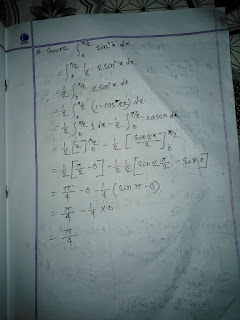 ∫₀^{π/2} sin²x dx
= ∫₀^{π/2} 1/2 2sin²x dx
= 1/2 ∫₀^{π/2} 2sin²x dx
= 1/2 ∫₀^{π/2} (1-cos2x) dx
= 1/2 ∫₀^{π/2} 1 dx - 1/2 ∫₀^{π/2} cos2x dx
= 1/2 [x]₀^{π/2} - 1/2 [sin2x/2]₀^{π/2}
= 1/2 [π/2 - 0] - 1/2 1/2 [sin2 π/2 - sin 0]
= π/4 - 0 - 1/4 (sin π - 0)
= π/4 - 1/4 × 0
= π/4